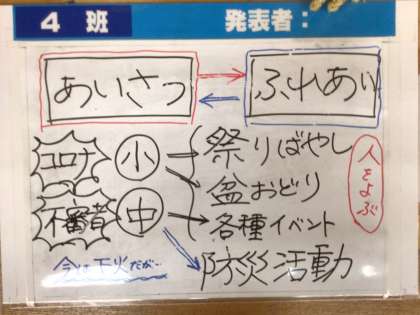 4 班 発表者：
あいさつ ふれあい
コロナ 小 祭りばやし
盆おどり
不審者 中 各種イベント
人をよぶ
今は下火だが… 防災活動